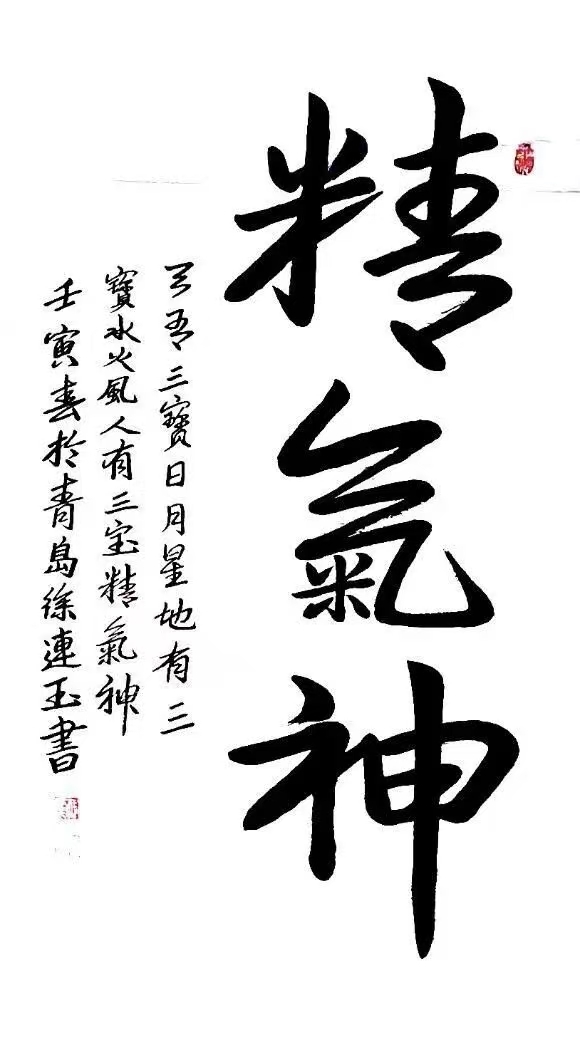 精氣神
天有三寶日月星地有三
寶水火風人有三宝精氣神
壬寅春於青島徐連玉書